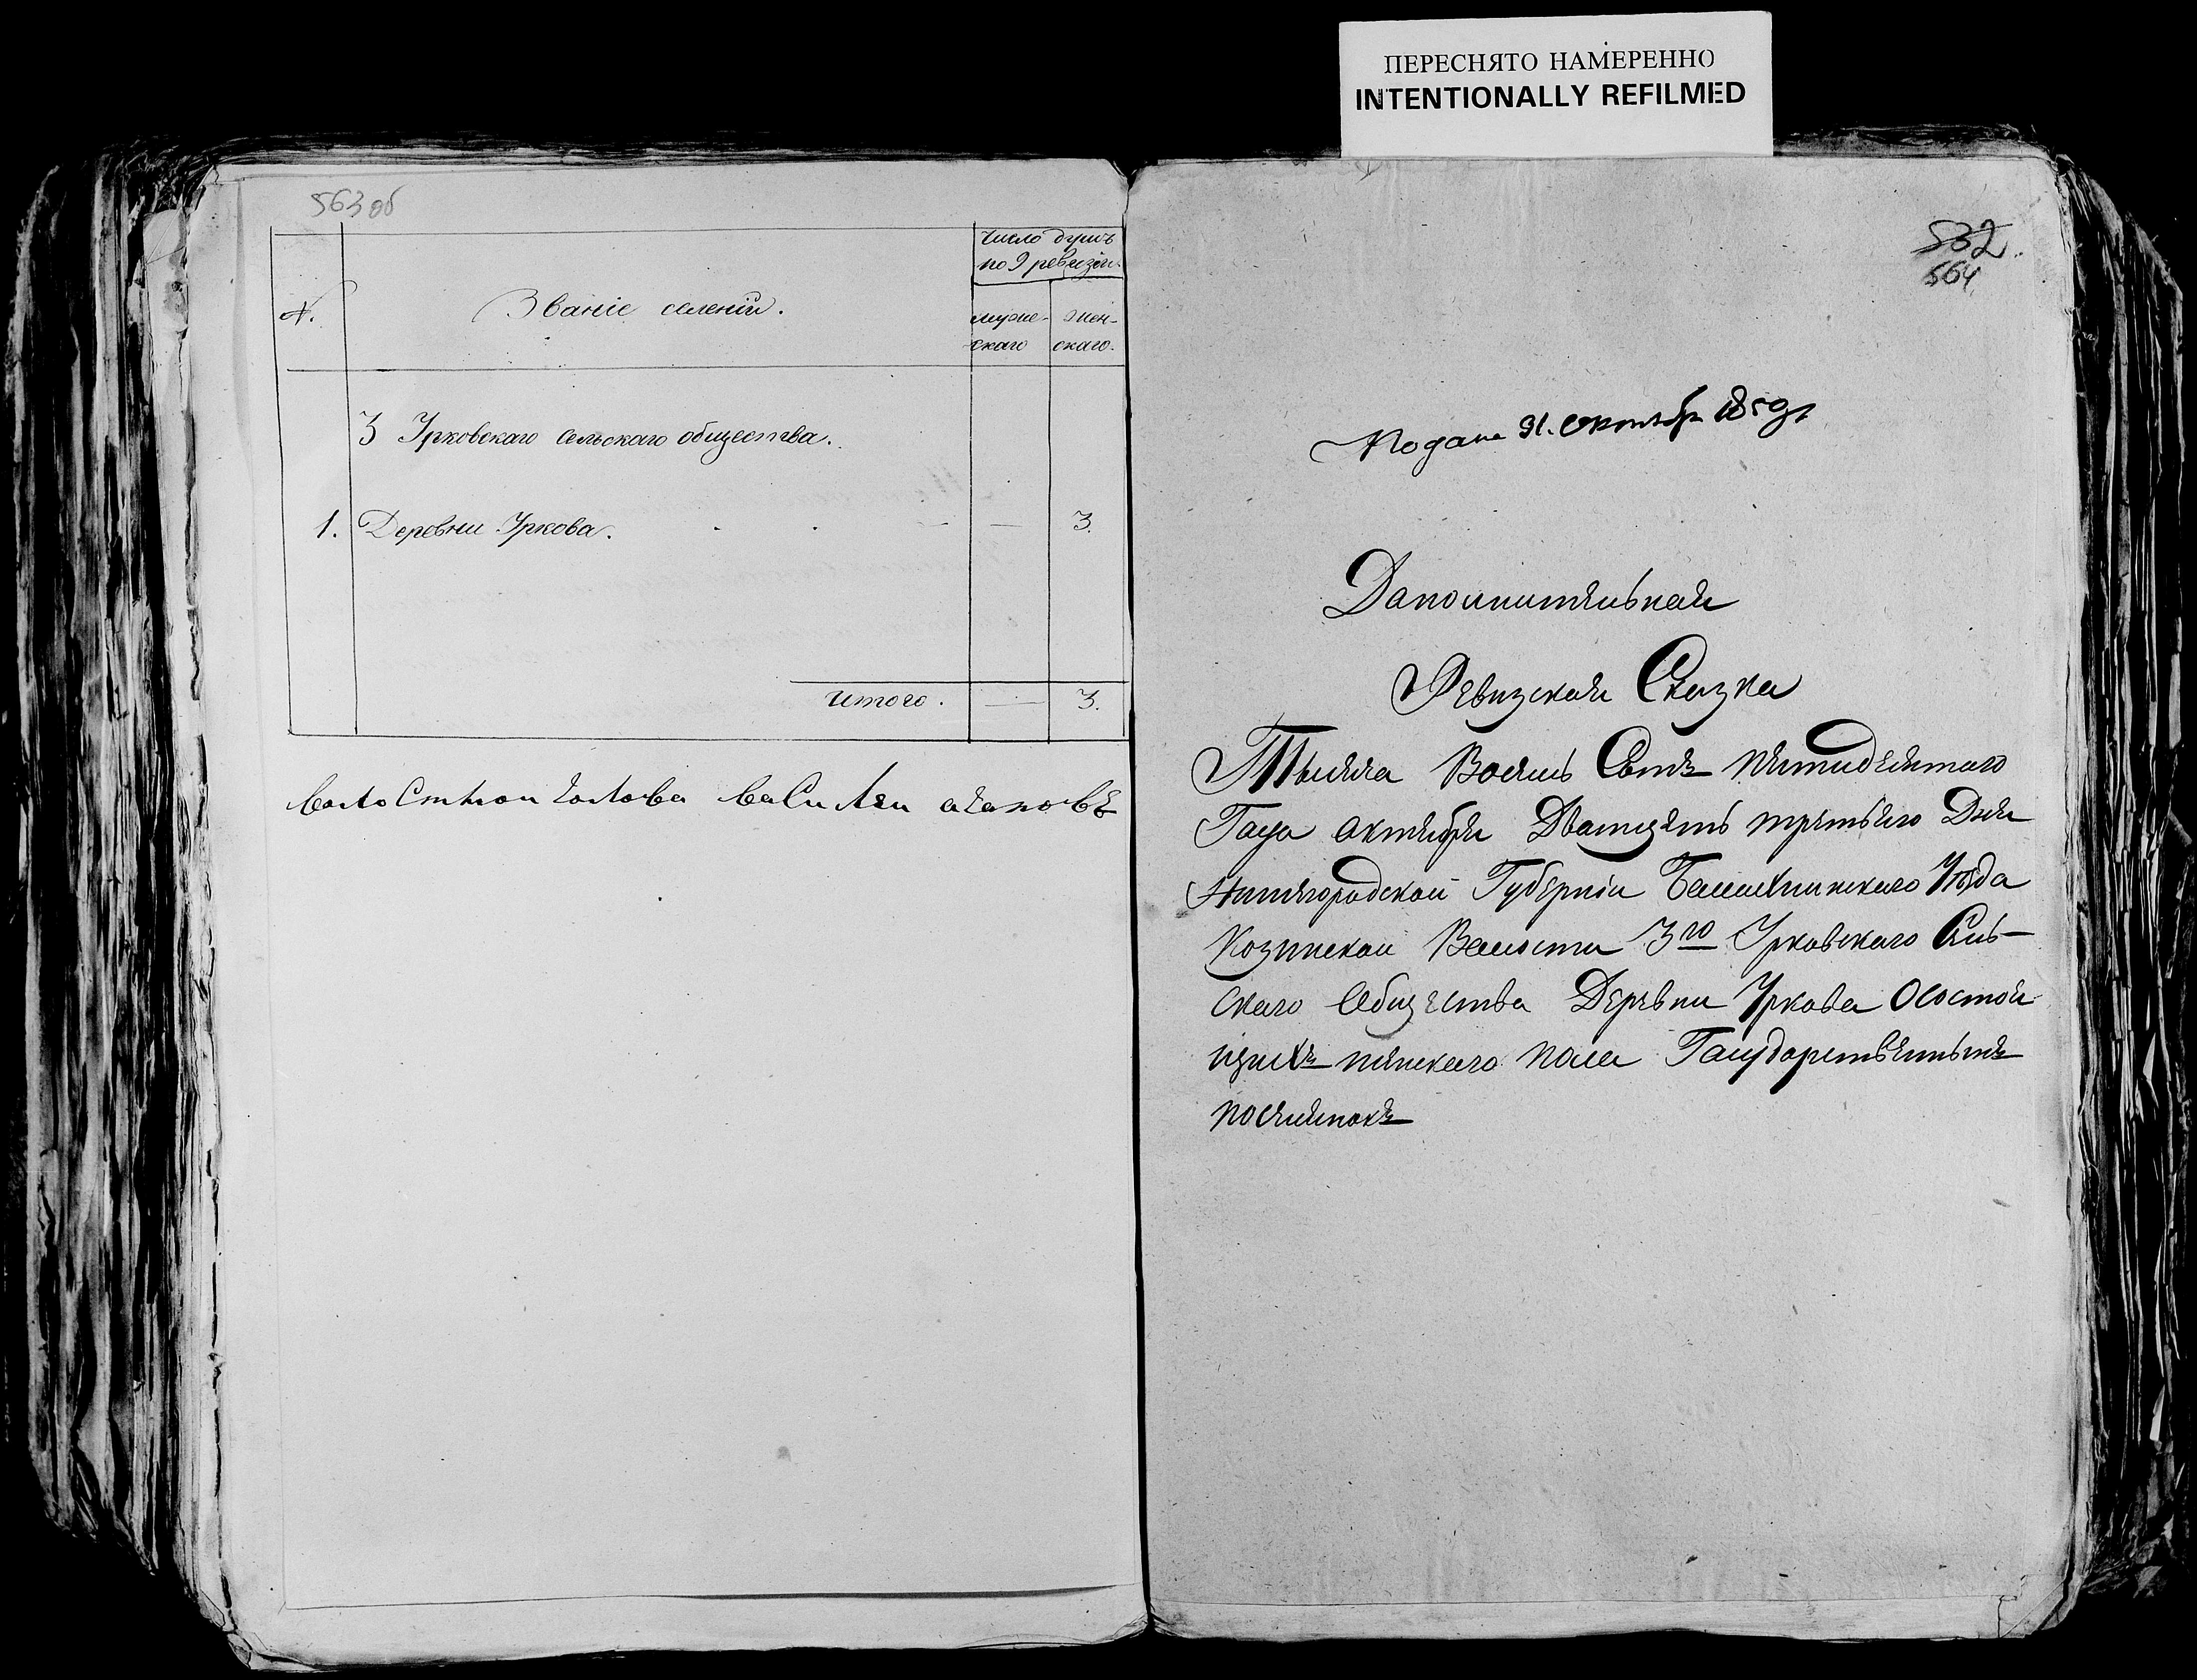 ПЕРЕСНЯТО НАМЕРЕННО
INTENTIONALLY REFILMED
563 об
Число душъ
по 9 ревизіи.
№.
Званіе селеній.
муже-
скаго
жен-
скаго.
3 Урковскаго сельскаго общества.
1. Деревни Уркова. — 3.
Итого. — 3.
волостной голова василей агаповъ
532
564
Подана 31. Октября 1850 г
Дополнительная
Ревизская Сказка
Тысяча Восемь Сотъ пятидесятаго
Года октября Дватцять третьяго Дня
Нижегородской Губерніи Балахнинскаго Уѣзда
Козинской Волости 3го Урковскаго Сель-
скаго Общества Деревни Уркова Осостоя
щихъ женскаго пола Государственныхъ
поселянокъ